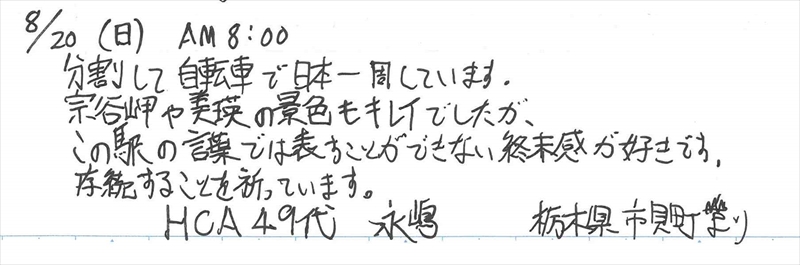 8/20 (日) AM 8:00
分割して自転車で日本一周しています.
宗谷岬や美瑛の景色もキレイでしたが、
この駅の言葉では表すことができない終末感が好きです.
存続することを祈っています。
HCA 49代 永嶋 栃木県市貝町より